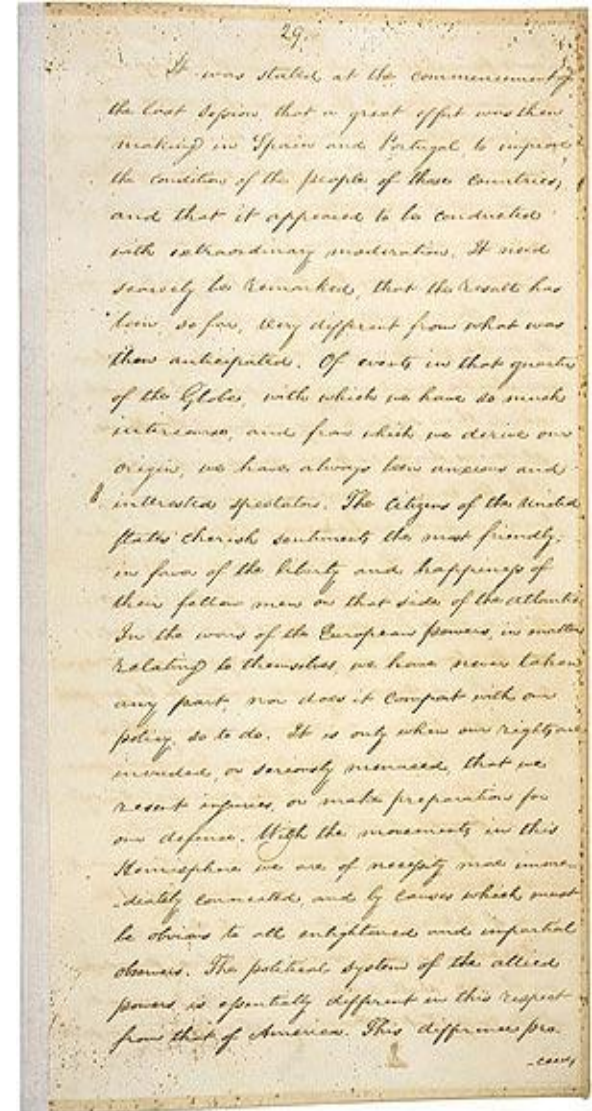 29.
It was stated at the commencement of
the last session, that a great effort was then
making in Spain and Portugal, to improve
the condition of the people of those countries,
and that it appeared to be conducted
with extraordinary moderation. It need
scarcely be remarked, that the result has
been, so far, very different from what was
then anticipated. Of events in that quarter
of the Globe, with which we have so much
intercourse, and from which we derive our
origin, we have always been anxious and
interested spectators. The citizens of the United
States cherish sentiments the most friendly,
in favor of the liberty and happiness of
their fellow men on that side of the atlantic.
In the wars of the European powers, in matters
relating to themselves, we have never taken
any part, nor does it comport with our
policy, so to do. It is only when our rights are
invaded, or seriously menaced, that we
resent injuries, or make preparation for
our defence. With the movements in this
Hemisphere we are of necessity more imme-
-diately connected, and by causes which must
be obvious to all enlightened and impartial
observers. The political system of the allied
powers, is essentially different in this respect
from that of America. This difference pro-
-ceeds,